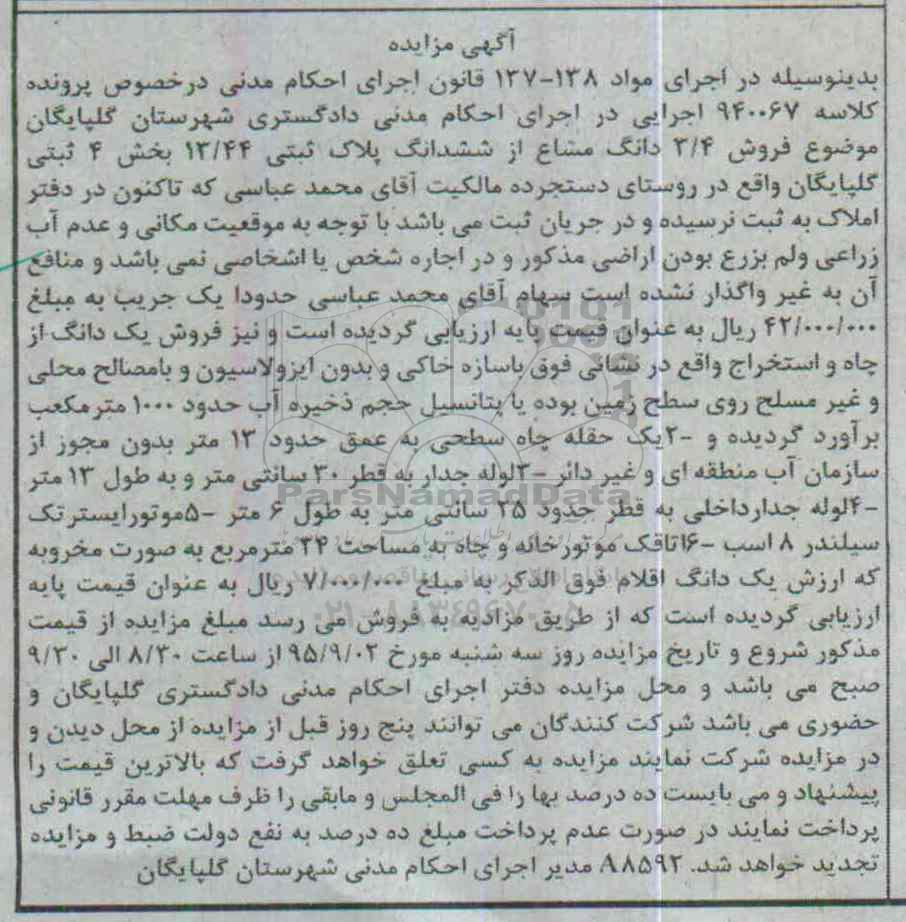 آگهی مزایده
بدینوسیله در اجرای مواد ۱۳۸-۱۳۷ قانون اجرای احکام مدنی درخصوص پرونده
کلاسه ۹۴۰۰۶۷ اجرایی در اجرای احکام مدنی دادگستری شهرستان گلپایگان
موضوع فروش ۳/۴ دانگ مشاع از ششدانگ پلاک ثبتی ۱۳/۴۴ بخش ۴ ثبتی
گلپایگان واقع در روستای دستجرده مالکیت آقای محمد عباسی که تاکنون در دفتر
املاک به ثبت نرسیده و در جریان ثبت می باشد با توجه به موقعیت مکانی و عدم آب
زراعی ولم بزرع بودن اراضی مذکور و در اجاره شخص یا اشخاصی نمی باشد و منافع
آن به غیر واگذار نشده است سهام آقای محمد عباسی حدودا یک جریب به مبلغ
۴۲/۰۰۰/۰۰۰ ریال به عنوان قیمت پایه ارزیابی گردیده است و نیز فروش یک دانگ از
چاه و استخراج واقع در نشانی فوق باسازه خاکی و بدون ایزولاسیون و بامصالح محلی
و غیر مسلح روی سطح زمین بوده یا پتانسیل حجم ذخیره آب حدود ۱۰۰۰ مترمکعب
برآورد گردیده و -۲یک حقله چاه سطحی به عمق حدود ۱۳ متر بدون مجوز از
سازمان آب منطقه ای و غیر دائر -۳لوله جدار به قطر ۳۰ سانتی متر و به طول ۱۳ متر
-۴لوله جدارداخلی به قطر حدود ۲۵ سانتی متر به طول ۶ متر -۵موتورایسترتک
سیلندر ۸ اسب -۶اتاقک موتورخانه و چاه به مساحت ۲۴ مترمربع به صورت مخروبه
که ارزش یک دانگ اقلام فوق الذکر به مبلغ ۷/۰۰۰/۰۰۰ ریال به عنوان قیمت پایه
ارزیابی گردیده است که از طریق مزادیه به فروش می رسد مبلغ مزایده از قیمت
مذکور شروع و تاریخ مزایده روز سه شنبه مورخ ۹۵/۹/۰۲ از ساعت ۸/۳۰ الی ۹/۳۰
صبح می باشد و محل مزایده دفتر اجرای احکام مدنی دادگستری گلپایگان و
حضوری می باشد شرکت کنندگان می توانند پنج روز قبل از مزایده از محل دیدن و
در مزایده شرکت نمایند مزایده به کسی تعلق خواهد گرفت که بالاترین قیمت را
پیشنهاد و می بایست ده درصد بها را فی المجلس و مابقی را ظرف مهلت مقرر قانونی
پرداخت نمایند در صورت عدم پرداخت مبلغ ده درصد به نفع دولت ضبط و مزایده
تجدید خواهد شد. ۸۸۵۹۲/ مدیر اجرای احکام مدنی شهرستان گلپایگان
ParsNamadData
۰۲۱-۸۸۳۴۹۶۷۰-۵